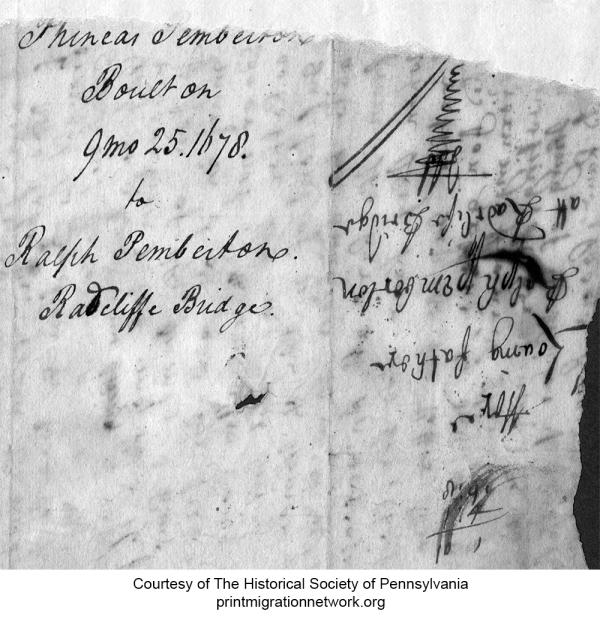 Phineas Pemberton
Boulton
9mo 25. 1678.
to
Ralph Pemberton.
Radcliffe Bridge.
Loving father
Ralph Pemberton
att Radclife Bridge
Courtesy of The Historical Society of Pennsylvania
printmigrationnetwork.org